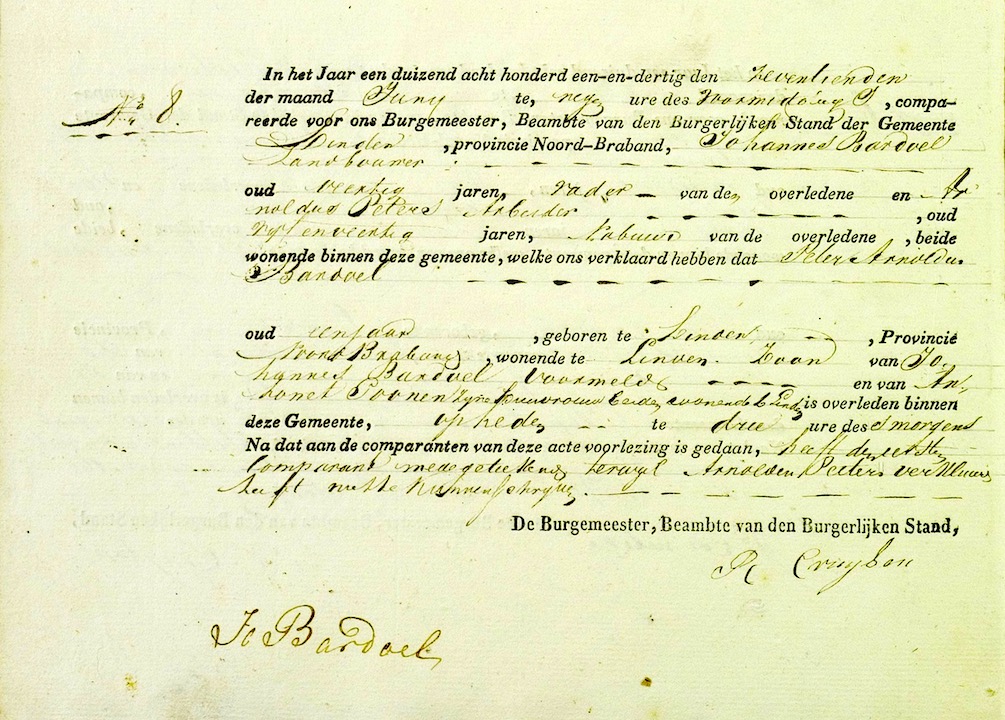 In het Jaar een duizend acht honderd een-en-dertig den zeventienden
No 8.
der maand Juny te, negen ure des voormiddags, compa-
reerde voor ons Burgemeester, Beambte van den Burgerlijken Stand der Gemeente
Linden, provincie Noord-Braband, Johannes Bardoel
Landbouwer
oud veertig jaren, vader van den overledene en Ar
noldus Peters Arbeider, oud
vyf en veertig jaren, Nabuur van de overledene, beide
wonende binnen deze gemeente, welke ons verklaard hebben dat Peter Arnoldus
Bardoel
oud een jaar, geboren te Linden, Provincie
Noord Braband, wonende te Linden Zoon van Jo-
hannes Bardoel voormeld en van An-
tonet Toonen zyne huisvrouw beide woonende te Linden is overleden binnen
deze Gemeente, op heden te drie ure des smorgens
Na dat aan de comparanten van deze acte voorlezing is gedaan, heeft den eersten
Comparant mede getekend terwyl Arnoldus Peters verklaard
heeft niet te kunnen schryven.
De Burgemeester, Beambte van den Burgerlijken Stand,
Jo Bardoel